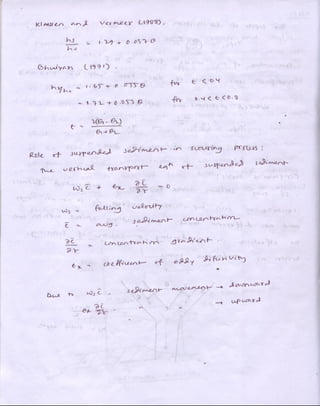 Klaasen and Vermeer (1988),
hs/h∞ = 1.29 + 0.057 θ
Bhuiyan (1991),
hs/h∞ = 1.65 + 0.055 θ for t < 0.4
= 1.72 + 0.053 θ for 0.4 < t < 0.8
t = 2(B1 - B2) / B1 + B2
Role of suspended sediment in scouring process :
The vertical transport eqn of suspended sediment
ws c̄ + εx ∂c̄/∂Y = 0
ws = falling velocity
c̄ = avg. sediment concentration
∂c̄/∂Y = concentration gradient
εx = coefficient of eddy diffusivity
Due to ws c̄ , sediment movement → downward
εx ∂c̄/∂Y " " → upward